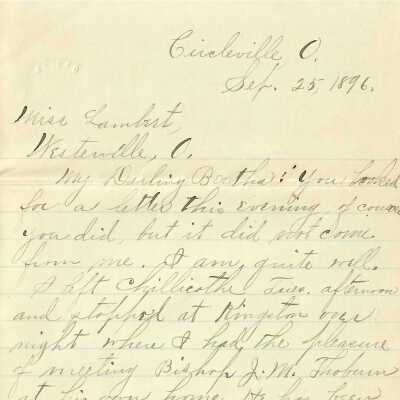 Circleville, O.
Sep. 25, 1896.
Miss Lambert,
Westerville, O.
My Darling Bertha: You looked
for a letter this evening, of course
you did, but it did not come
from me. I am quite well.
I left Chillicothe Tues. afternoon
and stopped at Kingston over
night where I had the pleasure
of meeting Bishop J. M. Thoburn
at his own home. He has been